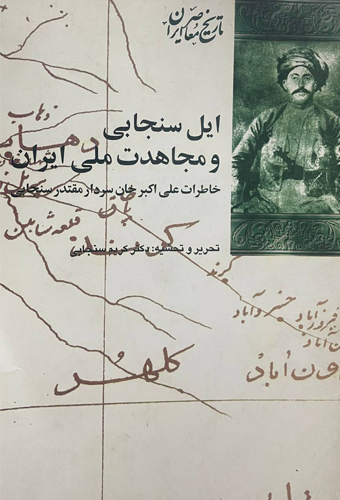 تاریخ معاصر ایران
ایل سنجابی
و مجاهدت ملی ایران
خاطرات علی اکبر خان سردار مقتدر سنجابی
تحریر و تحشیه: دکتر کریم سنجابی
ذهاب
قلعه شاهین
کرند
خسرو آباد
فیروز آباد
ون آباد
کلهر